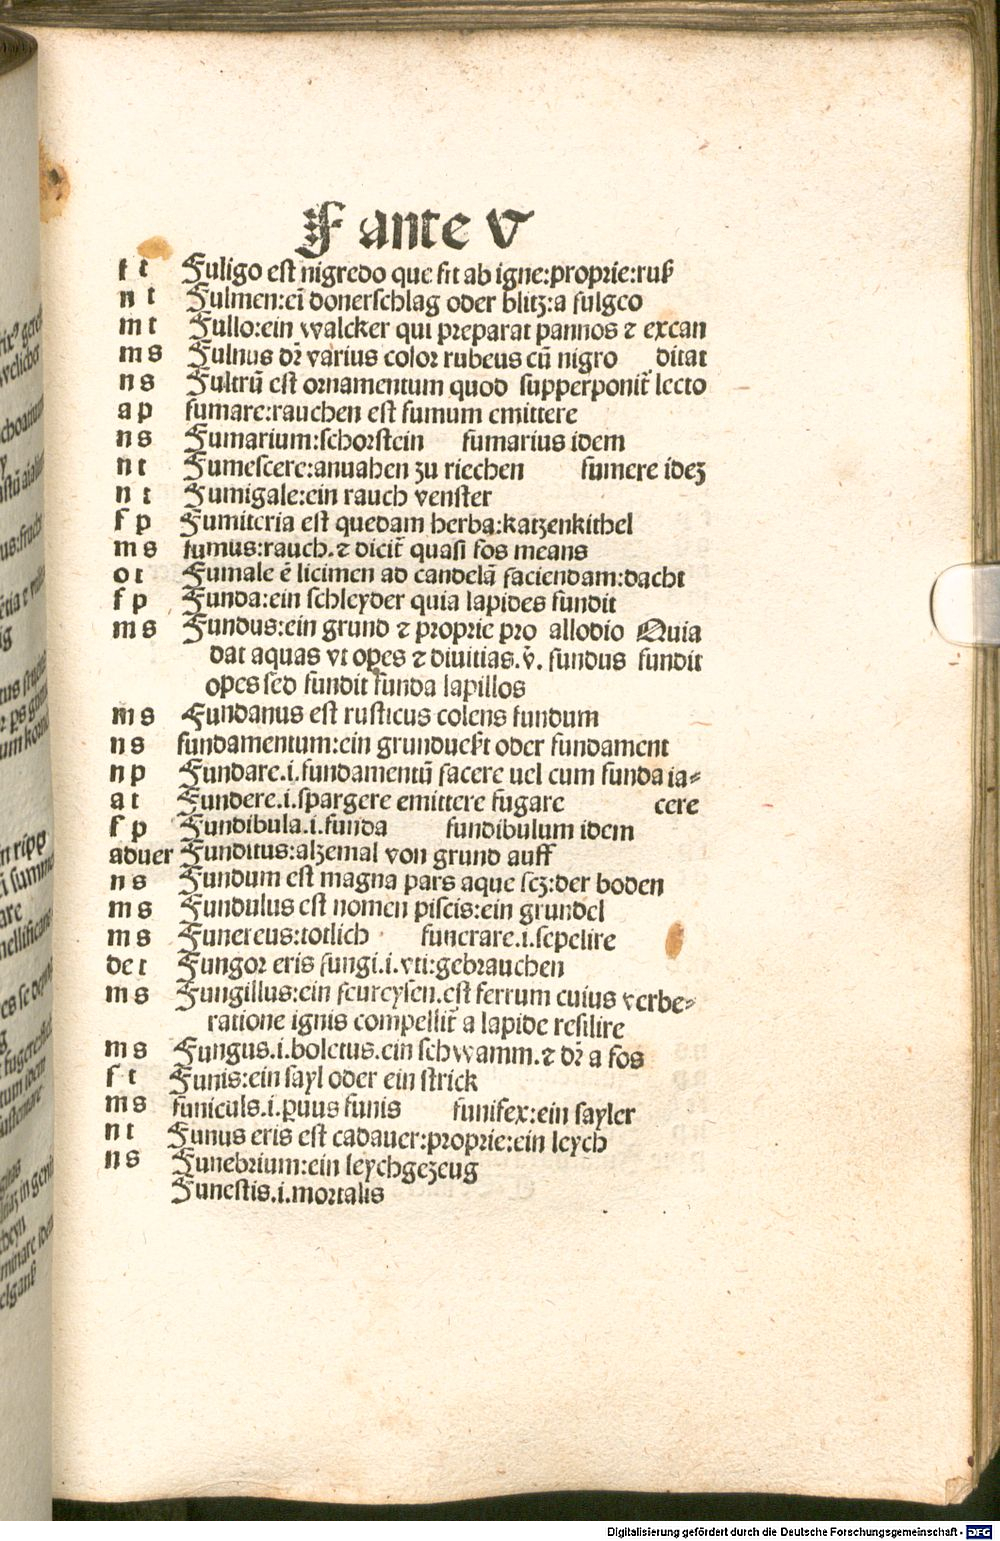 F ante V
f t Fuligo est nigredo que fit ab igne:proprie:ruß
n t Fulmen:eī donerschlag oder blitz:a fulgeo
m t Fullo:ein walcker qui preparat pannos ⁊ excan
m s Fulnus dr̄ varius color rubeus cū nigro ditat
n s Fultrū est ornamentum quod supperponit̄ lecto
a p fumare:rauchen est fumum emittere
n s Fumarium:schorstein fumarius idem
n t Fumescere:anuahen zu riechen fumere ideʒ
n t Fumigale:ein rauch venster
f p Fumiteria est quedam herba:katzenkithel
m s fumus:rauch.⁊ dicit̄ quasi fos means
o t Fumale ē licimen ad candelā faciendam:dacht
f p Funda:ein schleyder quia lapides fundit
m s Fundus:ein grund ⁊ proprie pro allodio Quia
dat aquas vt opes ⁊ diuitias.v̄. fundus fundit
opes sed fundit funda lapillos
m s Fundanus est rusticus colens fundum
n s fundamentum:ein grunduest oder fundament
n p Fundare.i.fundamentū facere uel cum funda ia⸗
a t Fundere.i.spargere emittere fugare cere
f p Fundibula.i.funda fundibulum idem
aduer Funditus:alzemal von grund auff
n s Fundum est magna pars aque seʒ:der boden
m s Fundulus est nomen piscis:ein grundel
m s Funereus:totlich funerare.i.sepelire
de t Fungor eris fungi.i.vti:gebrauchen
m s Fungillus:ein feureysen.est ferrum cuius verbe⸗
ratione ignis compellit̄ a lapide resilire
m s Fungus.i.boletus.ein schwamm.⁊ dr̄ a fos
f t Funis:ein sayl oder ein strick
m s funiculs.i.ꝑuus funis funifex:ein sayler
n t Funus eris est cadauer:proprie:ein leych
n s Funebrium:ein leychgezeug
Funestis.i.mortalis
Digitalisierung gefördert durch die Deutsche Forschungsgemeinschaft - DFG